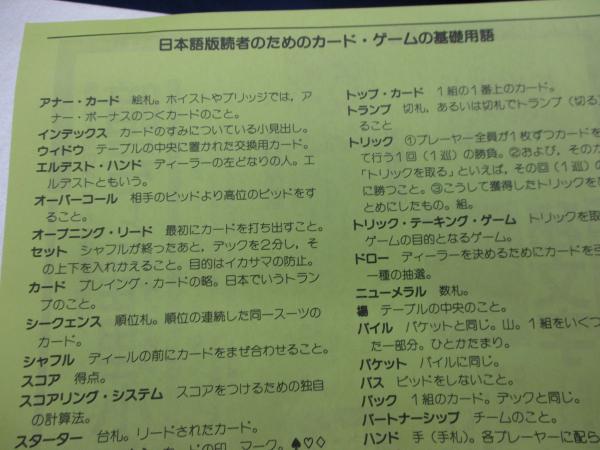 日本語版読者のためのカード・ゲームの基礎用語
アナー・カード 絵札。ホイストやブリッジでは,ア
ナー・ボーナスのつくカードのこと。
インデックス カードのすみについている小見出し。
ウィドウ テーブルの中央に置かれた交換用カード。
エルデスト・ハンド ディーラーの左どなりの人。エ
ルデストともいう。
オーバーコール 相手のビッドより高位のビッドをす
ること。
オープニング・リード 最初にカードを打ち出すこと。
セット シャフルが終ったあと,デックを2分し,そ
の上下を入れかえること。目的はイカサマの防止。
カード プレイング・カードの略。日本でいうトラン
プのこと。
シークェンス 順位札。順位の連続した同一スーツの
カード。
シャフル ディールの前にカードをまぜ合わせること。
スコア 得点。
スコアリング・システム スコアをつけるための独自
の計算法。
スターター 台札。リードされたカード。
カードの印,マーク。♠♡♢
トップ・カード 1組の1番上のカード。
トランプ 切札,あるいは切札でトランプ(切る)
ること
トリック ①プレーヤー全員が1枚ずつカードを
て行う1回(1巡)の勝負。②および,その
「トリックを取る」といえば,その回(1巡)の
に勝つこと。③こうして獲得したトリックを
とめにしたもの。組。
トリック・テーキング・ゲーム トリックを取
ゲームの目的となるゲーム。
ドロー ディーラーを決めるためにカードを引
一種の抽選。
ニューメラル 数札。
場 テーブルの中央のこと。
パイル パケットと同じ。山。1組をいくつ
た一部分。ひとかたまり。
パケット パイルに同じ。
パス ビッドをしないこと。
パック 1組のカード。デックと同じ。
パートナーシップ チームのこと。
ハンド 手(手札)。各プレーヤーに配ら